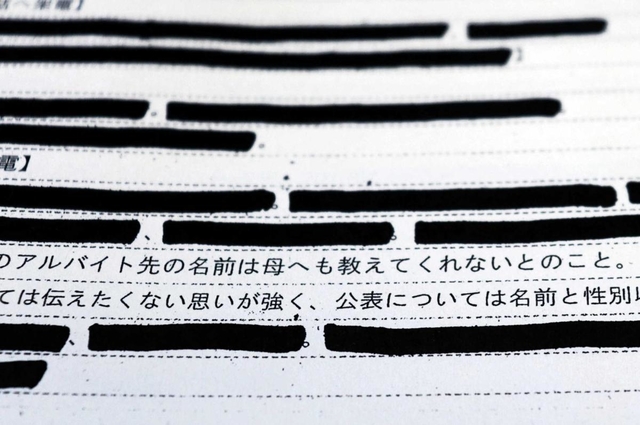 電】
のアルバイト先の名前は母へも教えてくれないとのこと。
ては伝えたくない思いが強く、公表については名前と性別